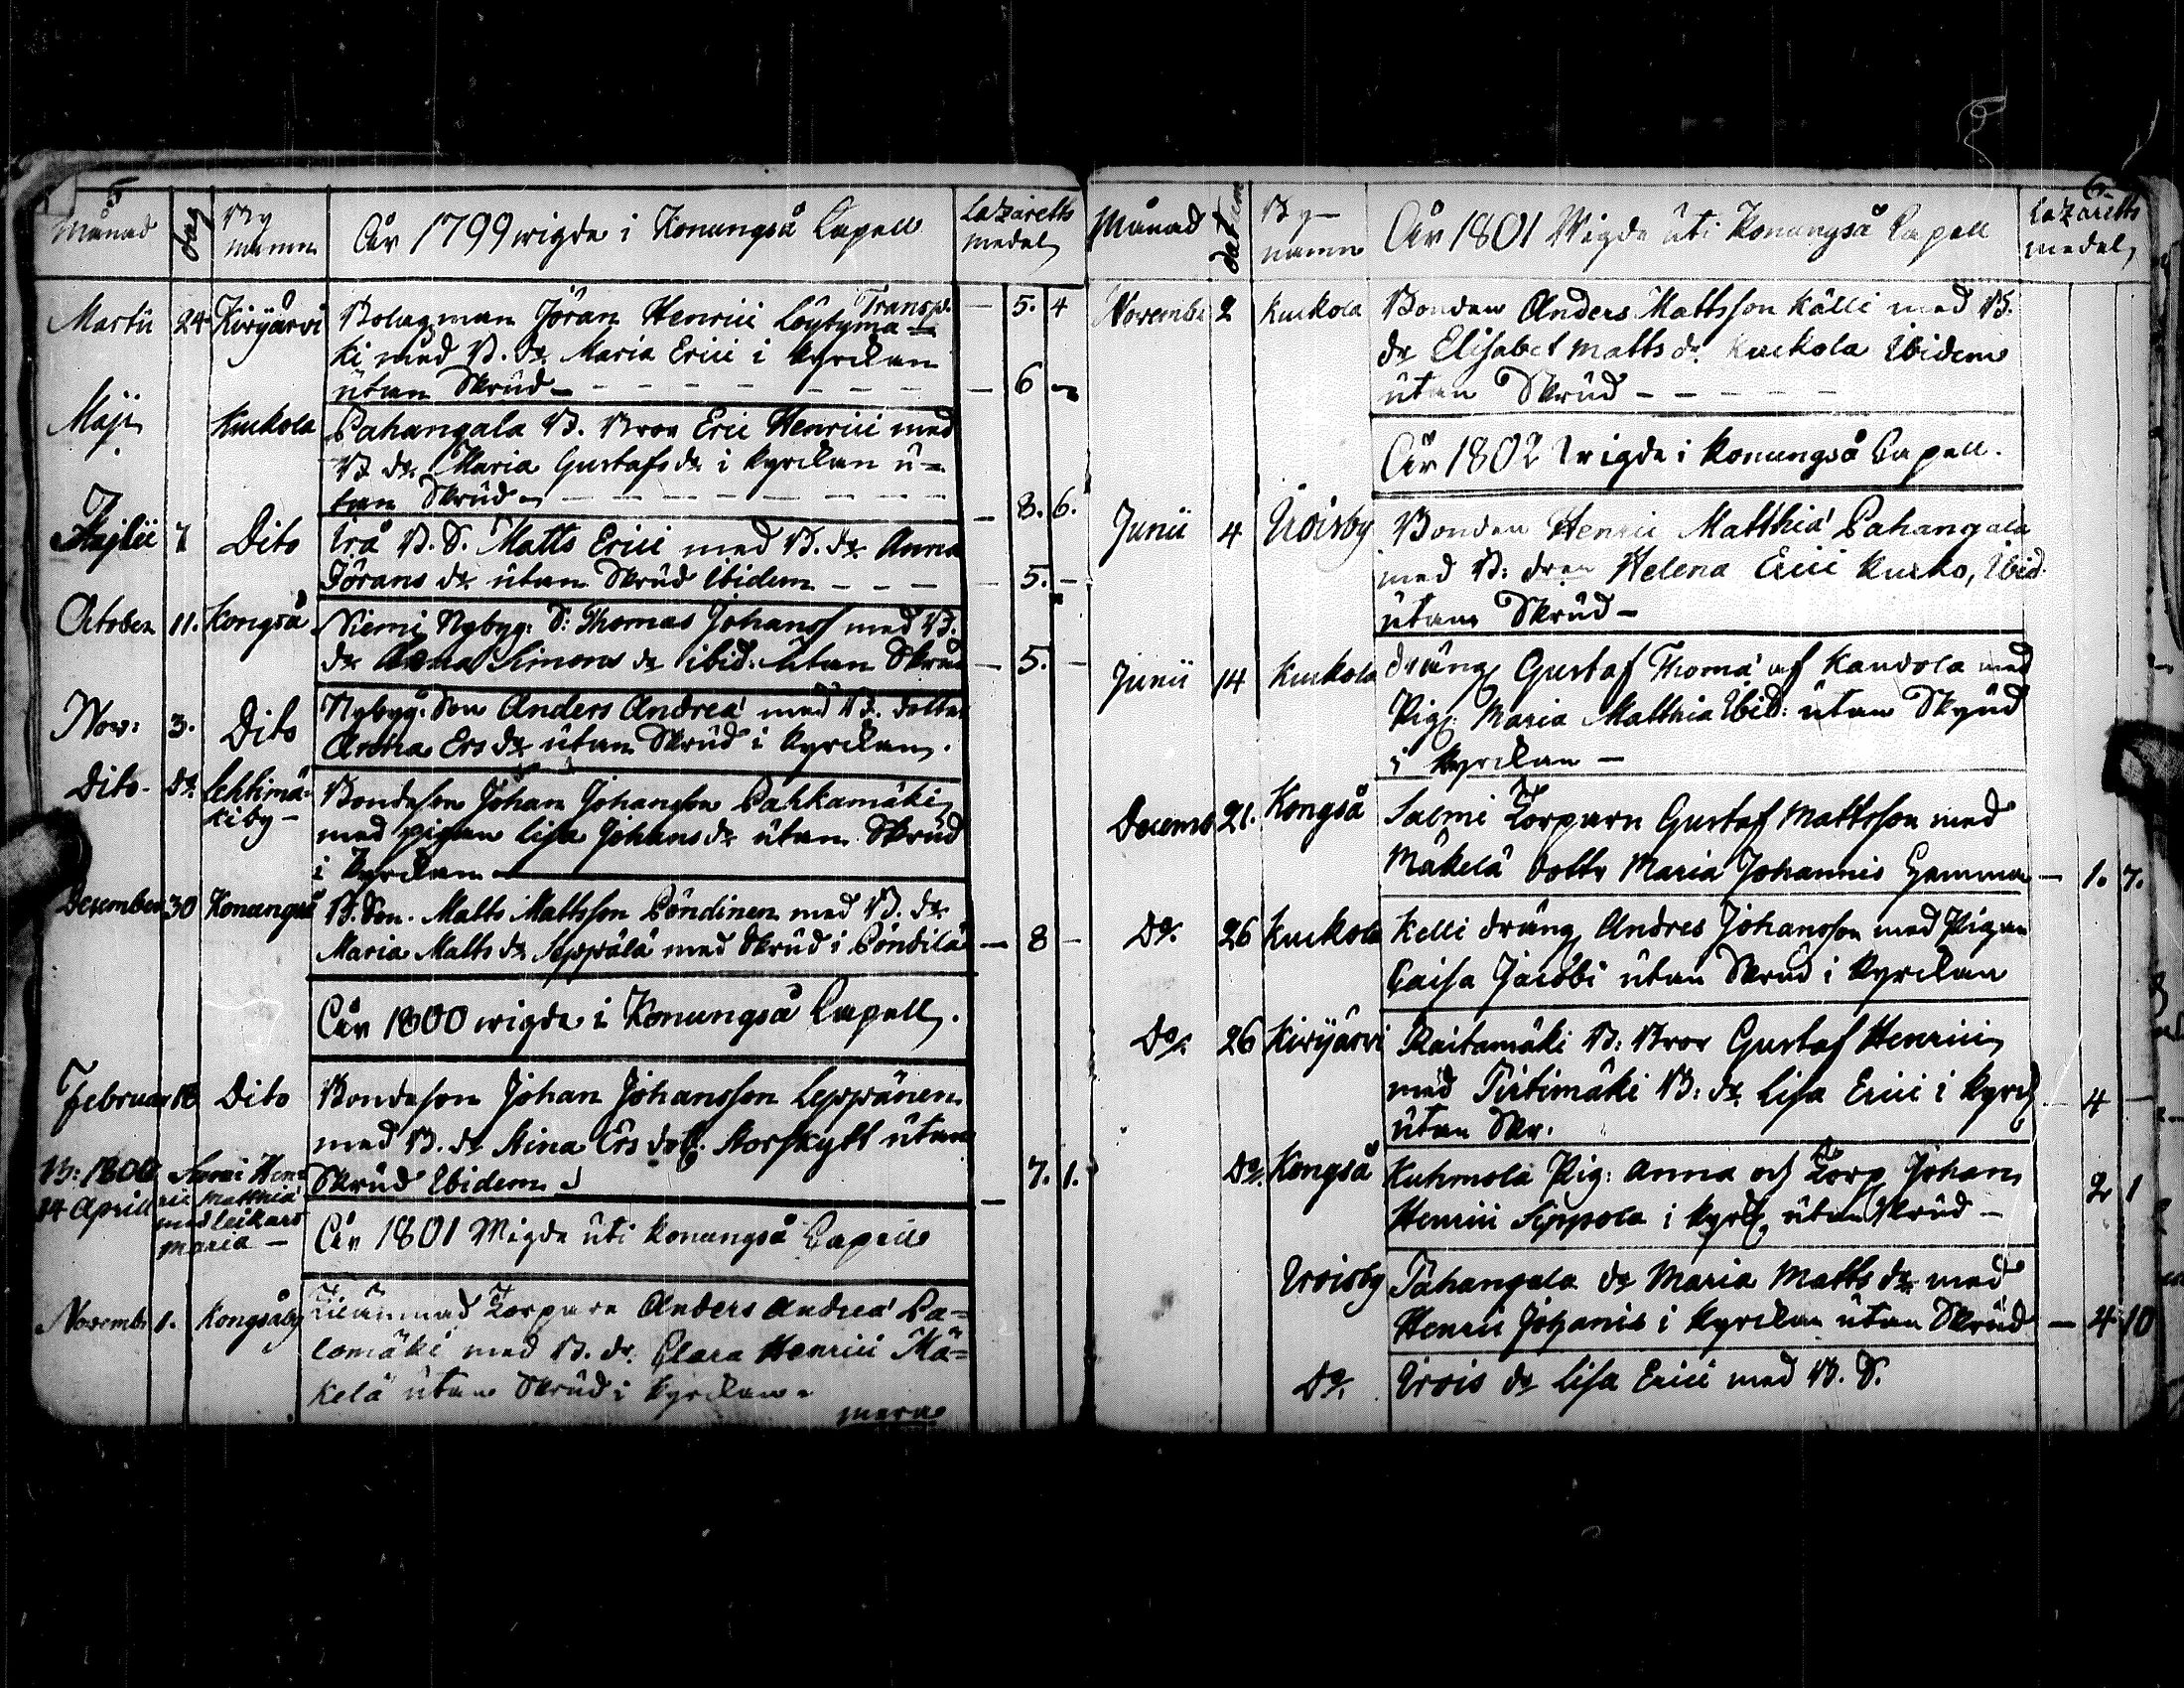 5
Månad dag By namn År 1799 wigde i Konungså Capell Lazaretts medel
Transp. — 5. 4
Martii 24 Kiryärvi Bolagman Jöran Henrici Löytymä-
ki med B. dr. Maria Erici i kyrckan
utan Skrud — — 6 —
Maji Kuckola Pahangala B. Bror Eric Henrici med
B dr. Maria Gustafs dr i kyrckan u-
tan Skrud — — 8. 6.
Julii 7 Dito B. S. Matts Erici med B. dr Anna
Jörans dr utan Skrud ibidem — — 5. —
October 11. Kongså Niemi Nybyg: S: Thomas Johanss med B.
dr Anna Simons dr ibid: utan Skrud — 5. —
Nov: 3. Dito Nybyg. Son Anders Andreæ med B. dotter
Anna Ers dr utan Skrud i kyrckan.
Dito dr. Lehtimä-
kiby — Bondeson Johan Johansson Pahkamäki
med pigan Lisa Johans dr utan Skrud
i kyrckan —
December 30 Konungså B. Son. Matts Mattsson Pöndinen med B. dr
Maria Matts dr Seppälä med Skrud i Pöndilä — 8 —
År 1800 wigde i Konungså Capell.
Februar 18 Dito Bondeson Johan Johansson Leppänen
med B. dr Stina Ers dott. Korskytt utan
Skrud Ibidem — 7. 1.
14 April Hen-
ric Matthiæ
med
Maria —
År 1801 Wigde uti Konungså Capell
Novemb: 1. Kongsåby Torpare Anders Andreæ Pa-
lomäki med B. dr. Clara Henrici Mä-
kelä utan Skrud i kyrckan.
6.
Månad datum By-namn År 1801 Wigde uti Konungså Capell Lazaretts medel
Novemb: 2 Kuckola Bonden Anders Mattsson Källi med B.
dr Elisabet Matts dr. Kuckola Ibidem
utan Skrud —
År 1802 wigde i Konungså Capell.
Junii 4 Bonden Henric Matthiæ Pahangala
med B: dren Helena Erici Kurko, Ibid.
utan Skrud —
Junii 14 Kuckola dräng Gustaf Thomæ af Kandola med
Pig. Maria Matthiæ Ibid: utan Skrud
i kyrckan —
Decemb 21. Kongså Salmi Torparn Gustaf Mattsson med
Mäkelä dottr Maria Johannis — 1. 7.
Do. 26 Kuckola Kelli dräng Andres Johansson med Pigan
Caisa Jacobi utan Skrud i kyrckan
Do. 26 Kiryärvi Raitamäki B: Bror Gustaf Henrici
med Pirtimäki B: dr Lisa Erici i kyrck — 4 —
utan Skr.
Do. Kongså Kuhmola Pig: Anna och Torp Johan 2 1
Henrici Seppola i kyrck. utan Skrud —
Pahangala dr Maria Matts dr med
Henric Johanis i kyrckan utan Skrud — 4 10
Do. dr Lisa Erici med B. S.